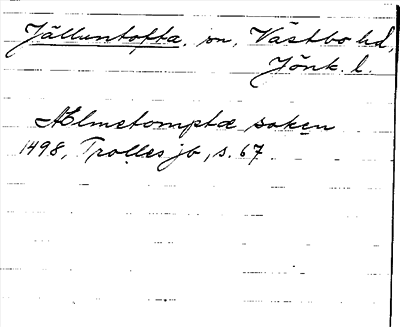 Jälluntofta, sn, Västbo hd,
Jönk. l.
Ælmetomptæ soken
1498, Trolles jb, s. 67.